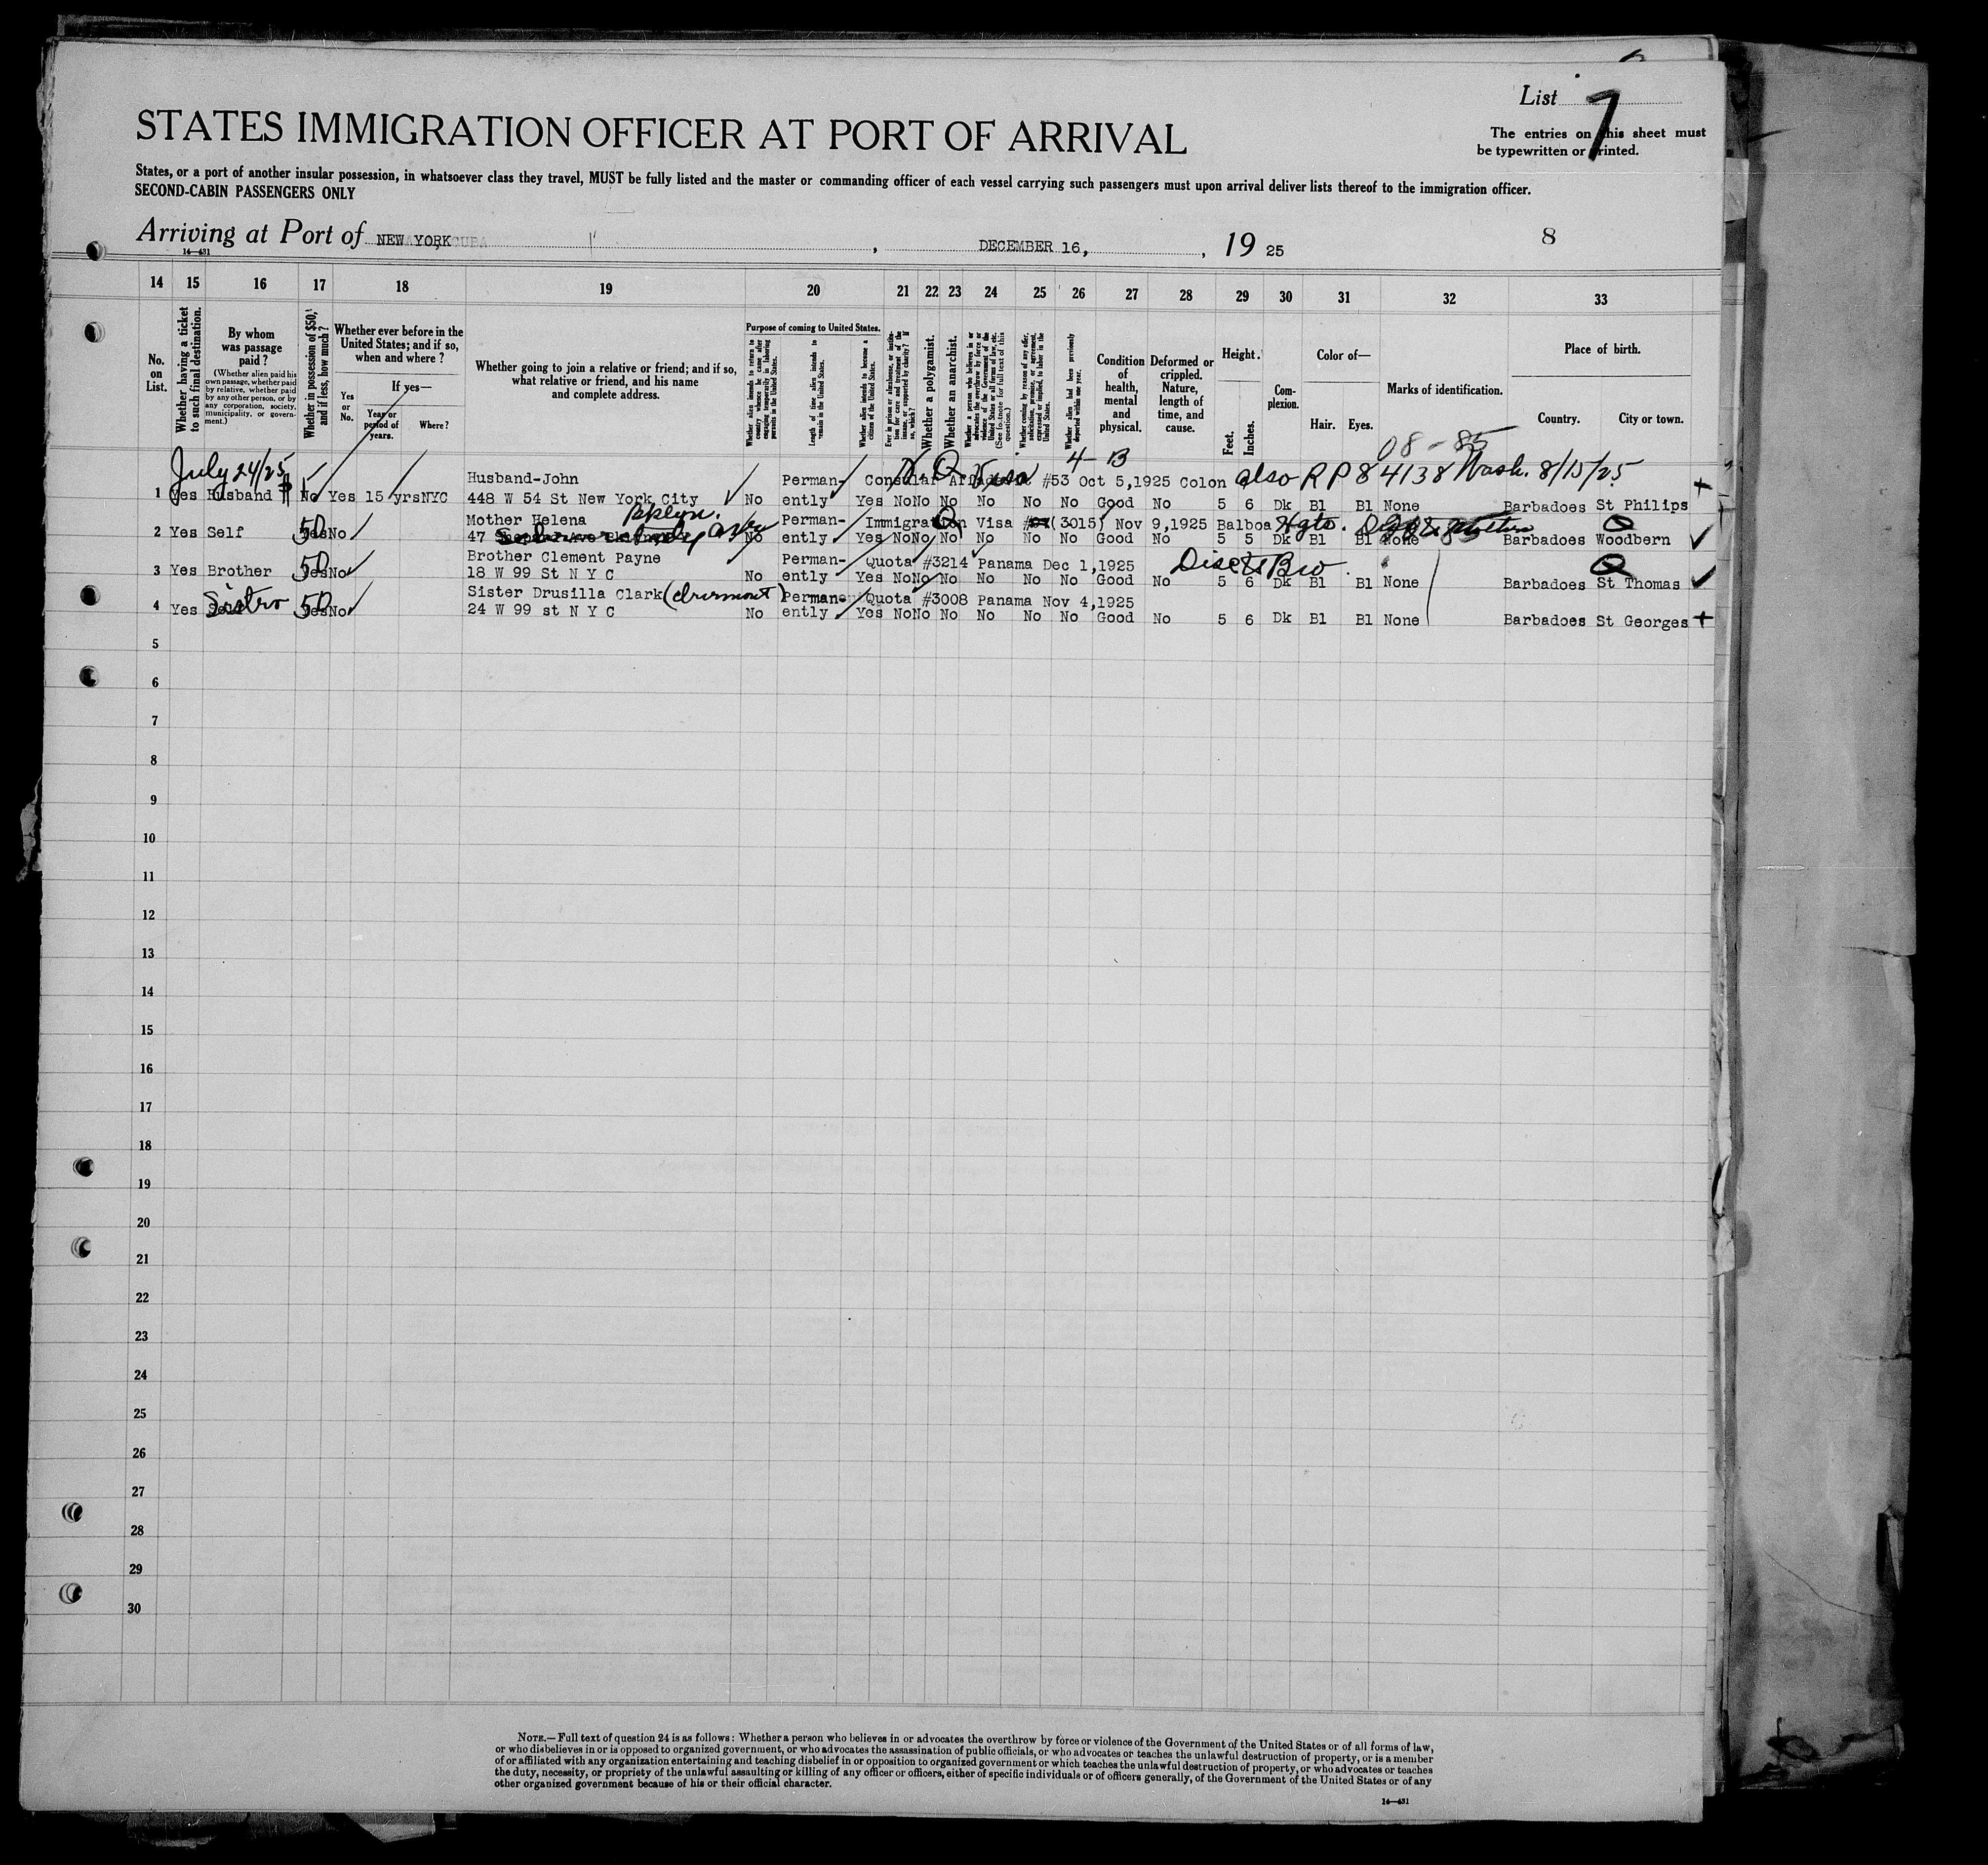 List 7
STATES IMMIGRATION OFFICER AT PORT OF ARRIVAL
The entries on this sheet must
be typewritten or printed.
States, or a port of another insular possession, in whatsoever class they travel, MUST be fully listed and the master or commanding officer of each vessel carrying such passengers must upon arrival deliver lists thereof to the immigration officer.
SECOND-CABIN PASSENGERS ONLY
Arriving at Port of NEW YORK, DECEMBER 16, 1925
8
14—431
14 15 16 17 18 19 20 21 22 23 24 25 26 27 28 29 30 31 32 33
No. on List.
Whether having a ticket to such final destination.
By whom was passage paid?
(Whether alien paid his own passage, whether paid by relative, whether paid by any other person, or by any corporation, society, municipality, or government.)
Whether in possession of $50, and if less, how much?
Whether ever before in the United States; and if so, when and where?
Yes or No.
If yes—
Year or period of years.
Where?
Whether going to join a relative or friend; and if so, what relative or friend, and his name and complete address.
Purpose of coming to United States.
Whether alien intends to return to country whence he came after engaging temporarily in laboring pursuits in the United States.
Length of time alien intends to remain in the United States.
Whether alien intends to become a citizen of the United States.
Ever in prison or almshouse, or institution for care and treatment of the insane, or supported by charity? If so, which?
Whether a polygamist.
Whether an anarchist.
Whether a person who believes in or advocates the overthrow by force or violence of the Government of the United States or all forms of law, etc. (See footnote for full text of this question.)
Whether coming by reason of any offer, solicitation, promise, or agreement, expressed or implied, to labor in the United States.
Whether alien had been previously deported within one year.
Condition of health, mental and physical.
Deformed or crippled. Nature, length of time, and cause.
Height.
Feet. Inches.
Complexion.
Color of—
Hair. Eyes.
Marks of identification.
Place of birth.
Country. City or town.
08-85
July 24/25 Husband-John Perman- Consular Visa #53 Oct 5,1925 Colon also RP 84138 Wash. 8/15/25
4-B
1 Yes Husband No Yes 15 yrs NYC 448 W 54 St New York City No ently Yes No No No No No No Good No 5 6 Dk Bl Bl None Barbadoes St Philips
Mother Helena Bklyn. Perman- Immigration Visa (3015) Nov 9,1925 Balboa
2 Yes Self 50 Yes No 47 No ently Yes No No No No No No Good No 5 5 Dk Bl Bl None Barbadoes Woodbern
Brother Clement Payne Perman- Quota #3214 Panama Dec 1,1925
3 Yes Brother 50 Yes No 18 W 99 St N Y C No ently Yes No No No No No No Good No 5 6 Dk Bl Bl None Barbadoes St Thomas
Sister Drusilla Clark Perman- Quota #3008 Panama Nov 4,1925
4 Yes Sister 50 Yes No 24 W 99 st N Y C No ently Yes No No No No No No Good No 5 6 Dk Bl Bl None Barbadoes St Georges
5
6
7
8
9
10
11
12
13
14
15
16
17
18
19
20
21
22
23
24
25
26
27
28
29
30
NOTE.—Full text of question 24 is as follows: Whether a person who believes in or advocates the overthrow by force or violence of the Government of the United States or of all forms of law,
or who disbelieves in or is opposed to organized government, or who advocates the assassination of public officials, or who advocates or teaches the unlawful destruction of property, or is a member
of or affiliated with any organization entertaining and teaching disbelief in or opposition to organized government or which teaches the unlawful destruction of property, or who advocates or teaches
the duty, necessity, or propriety of the unlawful assaulting or killing of any officer or officers, either of specific individuals or of officers generally, of the Government of the United States or of any
other organized government because of his or their official character.
14—431